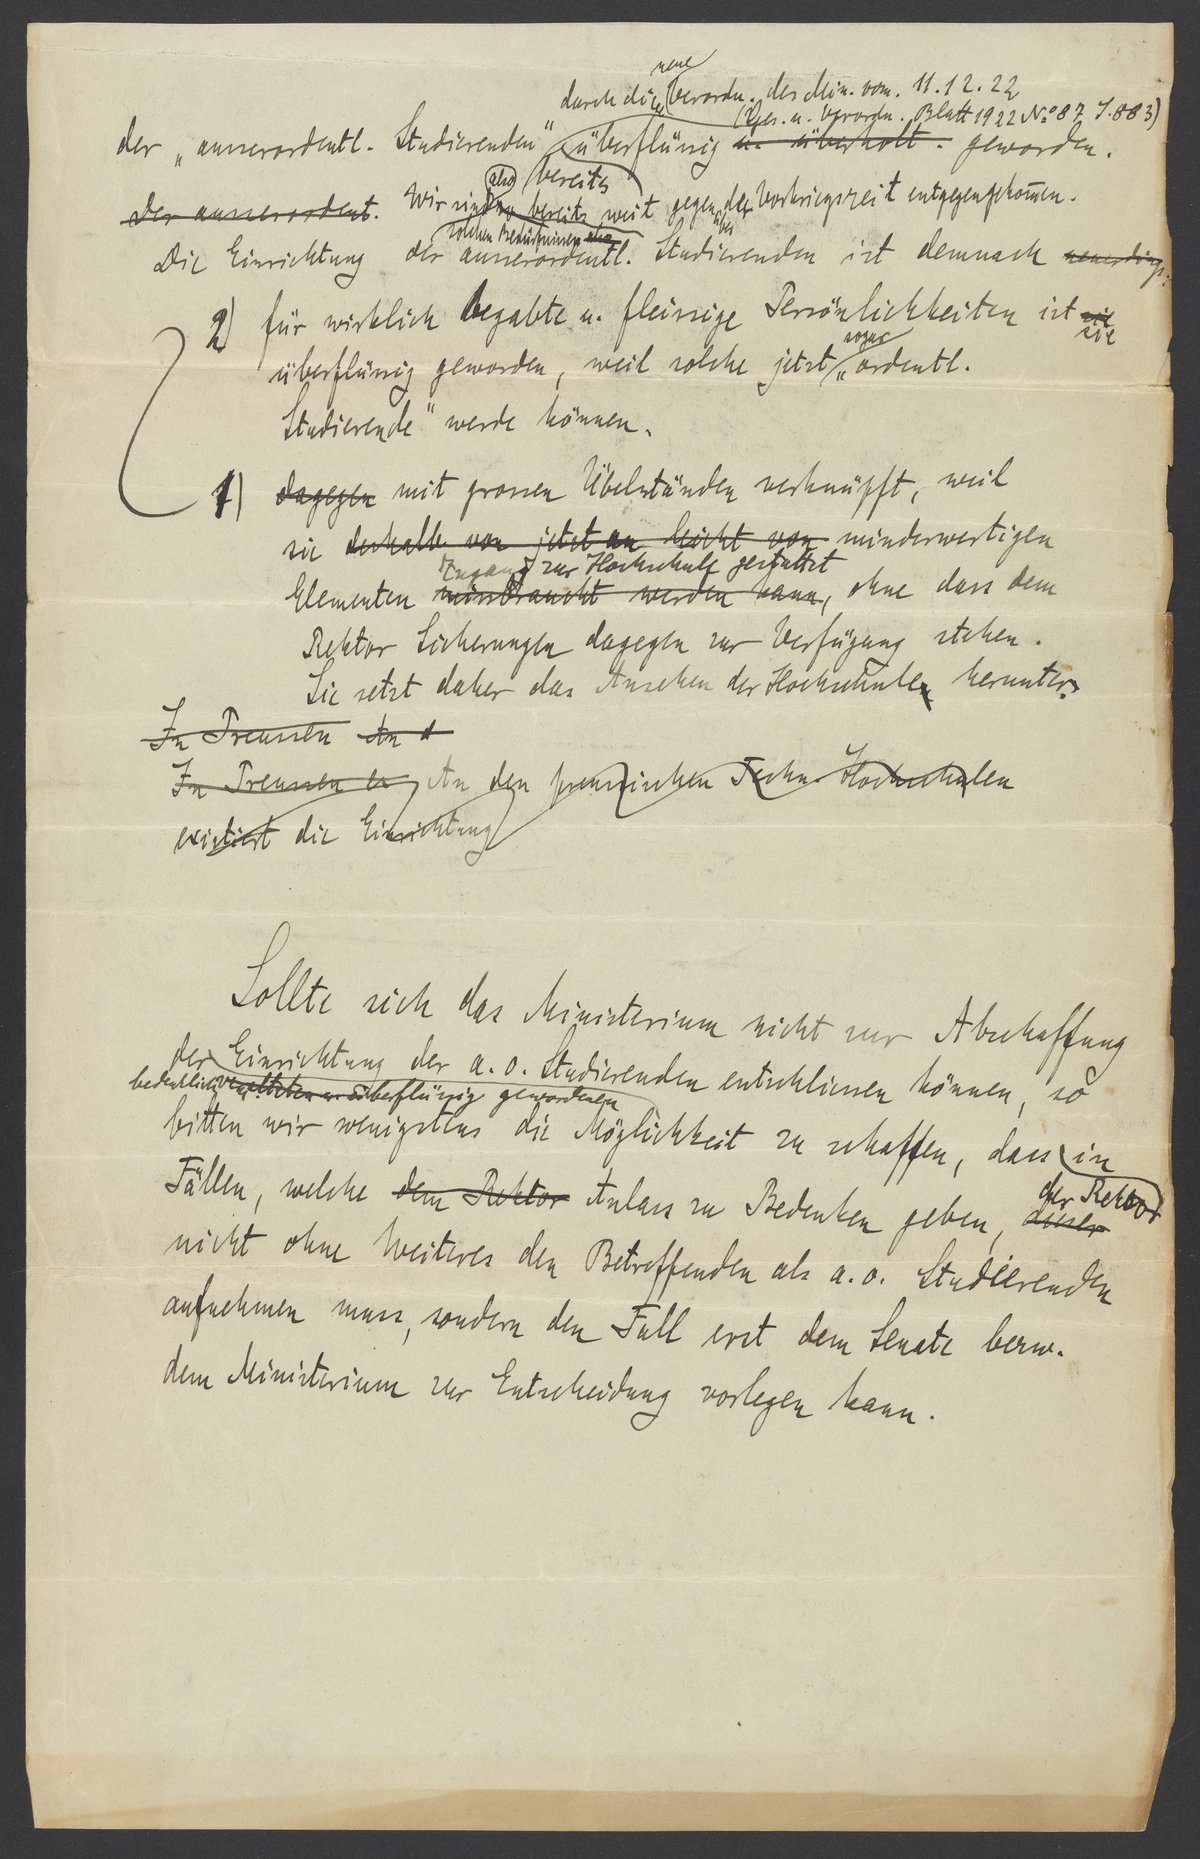 neue
durch die Verordn. des Min. vom. 11.12.22
(Ges. u. Verordn. Blatt 1922 No 87 S. 883)
der „ausserordentl. Studierenden" überflüssig u. überholt. geworden.
also bereits
der ausserordent. Wir sind bereits weit gegenüber der Vorkriegszeit entgegengekom̄en.
solchen Bedürfnissen also
Die Einrichtung der ausserordentl. Studierenden ist demnach neuerdings.
2) für wirklich begabte u. fleissige Persönlichkeiten ist sie
sie
sogar
überflüssig geworden, weil solche jetzt „ordentl.
Studierende" werde können.
1) dagegen mit grossen Übelständen verknüpft, weil
sie deshalb von jetzt an leicht von minderwertigen
Zugang zur Hochschule gestattet
Elementen missbraucht werden kann, ohne dass dem
Rektor Sicherungen dagegen zur Verfügung stehen.
Sie setzt daher das Ansehen der Hochschulen herunter.
In Preussen An d
In Preussen ex An den preussischen Techn. Hochschulen
existiert die Einrichtung
Sollte sich das Ministerium nicht zur Abschaffung
der Einrichtung der a. o. Studierenden entschliessen können, so
bedenklichen veralteten u. überflüssig gewordenen
bitten wir wenigstens die Möglichkeit zu schaffen, dass in
Fällen, welche dem Rektor Anlass zu Bedenken geben, dieser
der Rektor
nicht ohne Weiteres den Betreffenden als a. o. Studierenden
aufnehmen muss, sondern den Fall erst dem Senate bezw.
dem Ministerium zur Entscheidung vorlegen kann.